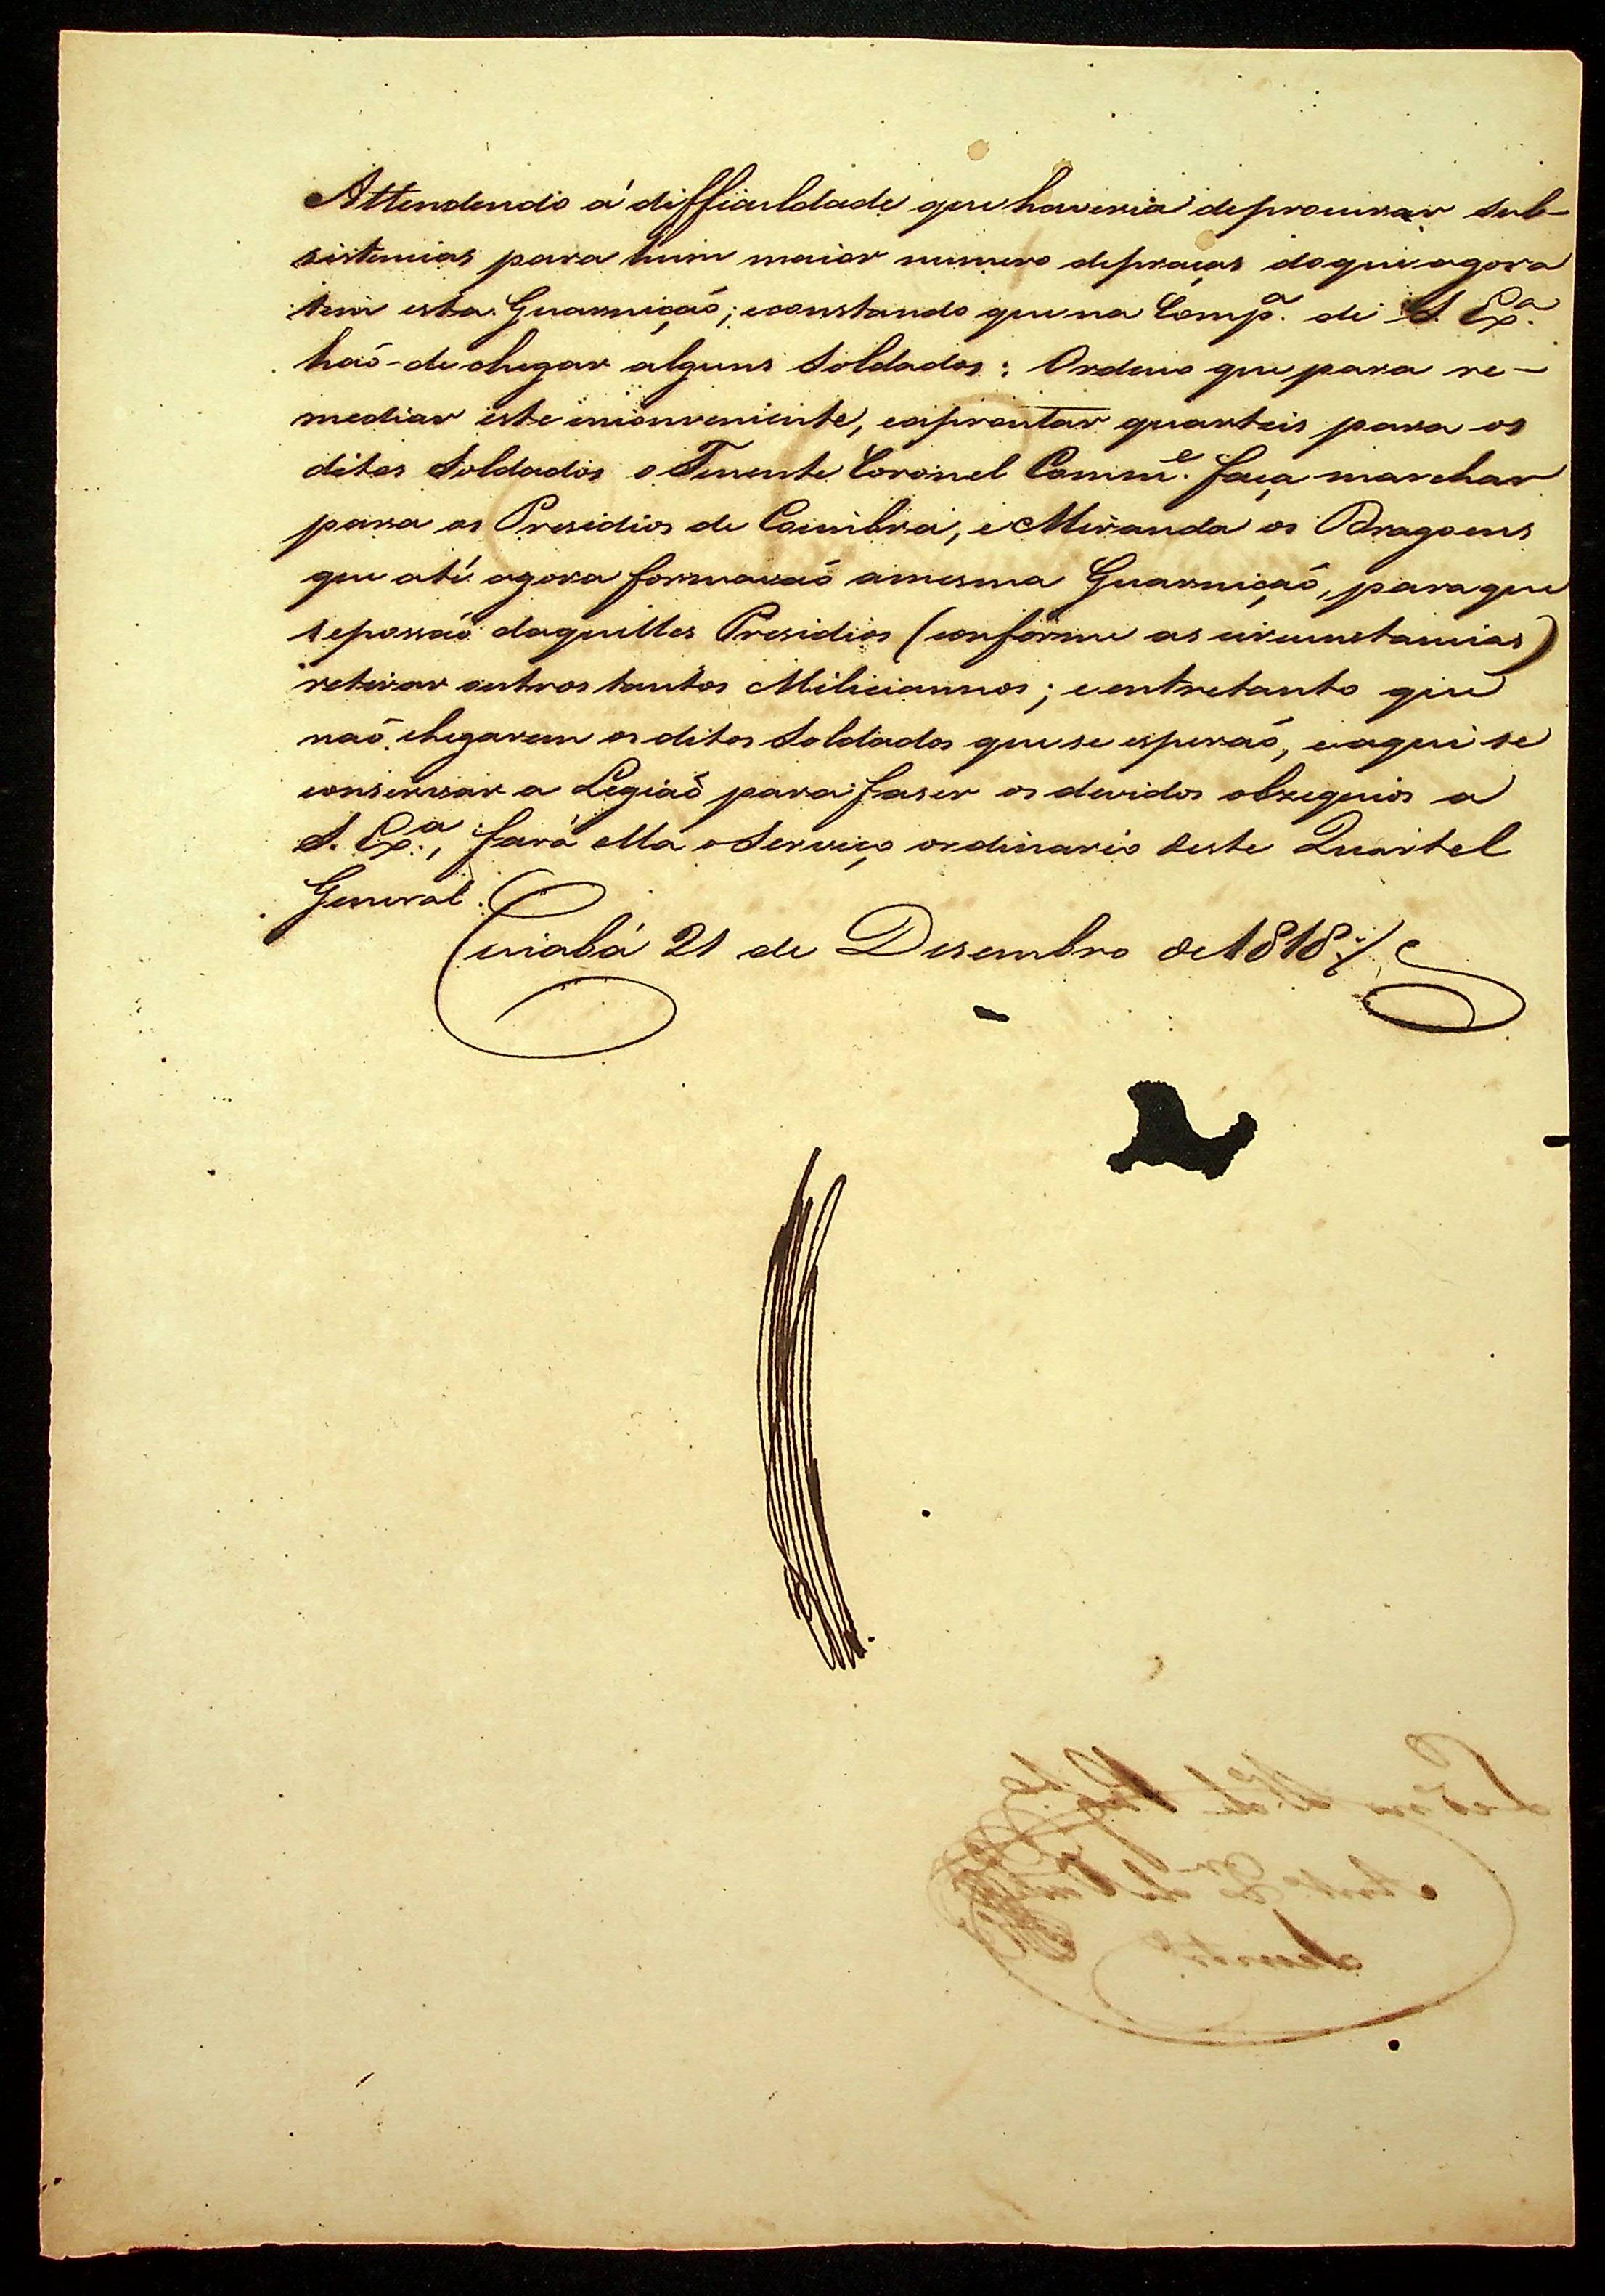 Attendendo á difficuldade que haveria deprocurar sub-
sistencias para hum maior numero depraças doque agora
tem esta Guarniçaõ; econstando que na Comp.ª de S. Ex.ª
haõ-de chegar alguns Soldados: Ordeno que para re-
mediar este inconveniente, eaprontar quarteis para os
ditos Soldados o Tenente Coronel Comm.e faça marchar
para os Presidios de Coimbra, e Miranda os Dragoens
que até agora formavaõ amesma Guarniçaõ, paraque
sepossaõ daquelles Presidios (conforme as circunstancias)
retirar outros tantos Miliciannos; e entretanto que
naõ chegarem os ditos Soldados que se esperaõ, eaqui se
conservar a Legiaõ para faser os devidos obzequios a
S. Ex.ª, fará ella o Serviço ordinario deste Quartel
General.
Cuiabá 21 de Desembro de 1818